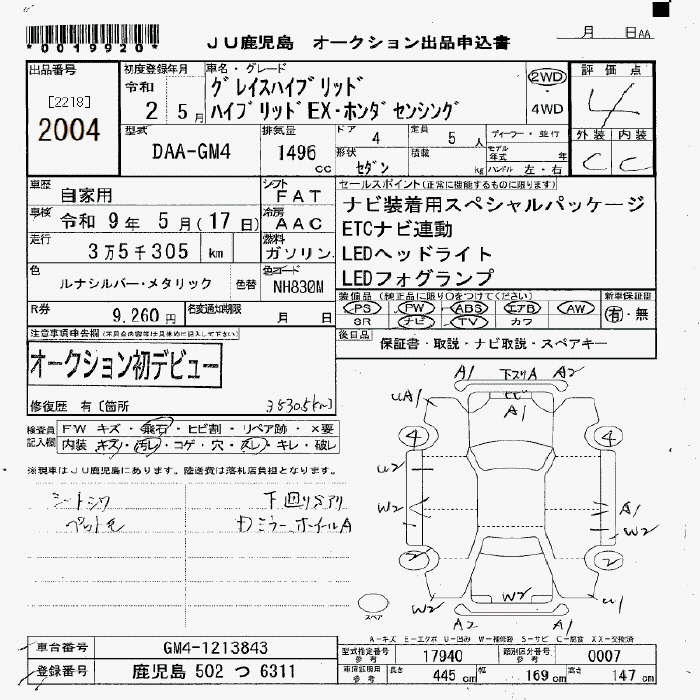 *0019920*
JU鹿児島 オークション出品申込書
月 日AA
出品番号
[2218]
2004
初度登録年月
令和
2 5月
車名・グレード
グレイスハイブリッド
ハイブリッドEX・ホンダセンシング
2WD
4WD
評価点
4
外装 内装
C C
型式
DAA-GM4
排気量
1496 cc
ドア 4
定員 5人
形状 セダン
積載 kg
ディーラー・並行
モデル年式 年
ハンドル 左・右
車歴 自家用
シフト FAT
車検 令和 9年 5月(17日)
冷房 AAC
走行 3万5千305 km
燃料 ガソリン
色 ルナシルバー・メタリック
色替
色コード NH830M
R券 9,260円
名変通知期限 月 日
セールスポイント(正常に機能するものに限ります)
ナビ装着用スペシャルパッケージ
ETCナビ連動
LEDヘッドライト
LEDフォグランプ
装備品(純正品に限り○をつけてください)
PS PW ABS エアB AW
SR ナビ TV カワ
新車保証書
有・無
後日品 保証書・取説・ナビ取説・スペアキー
注意事項申告欄
オークション初デビュー
修復歴 有〔箇所
35305km〕
検査員記入欄
FW キズ・飛石・ヒビ割・リペア跡・×要
内装 キズ・汚レ・コゲ・穴・スレ・キレ・破レ
※現車はJU鹿児島にあります。陸送費は落札店負担となります。
シートシワ
ペット毛
下廻りサアリ
ミラー、ホイールA
A1 下スリA A2
uA1 A1
4 4
u2
W2 A1
W2
2 2
W2 W2 u1
A2 A1
スペア
A-キズ E-エクボ U-凹み W-補修跡 S-サビ C-腐食 XX-交換済
車台番号 GM4-1213843
登録番号 鹿児島 502 つ 6311
型式指定番号 参考 17940
類別区分番号 参考 0007
車検証記載 参考
長さ 445cm 幅 169cm 高さ 147cm